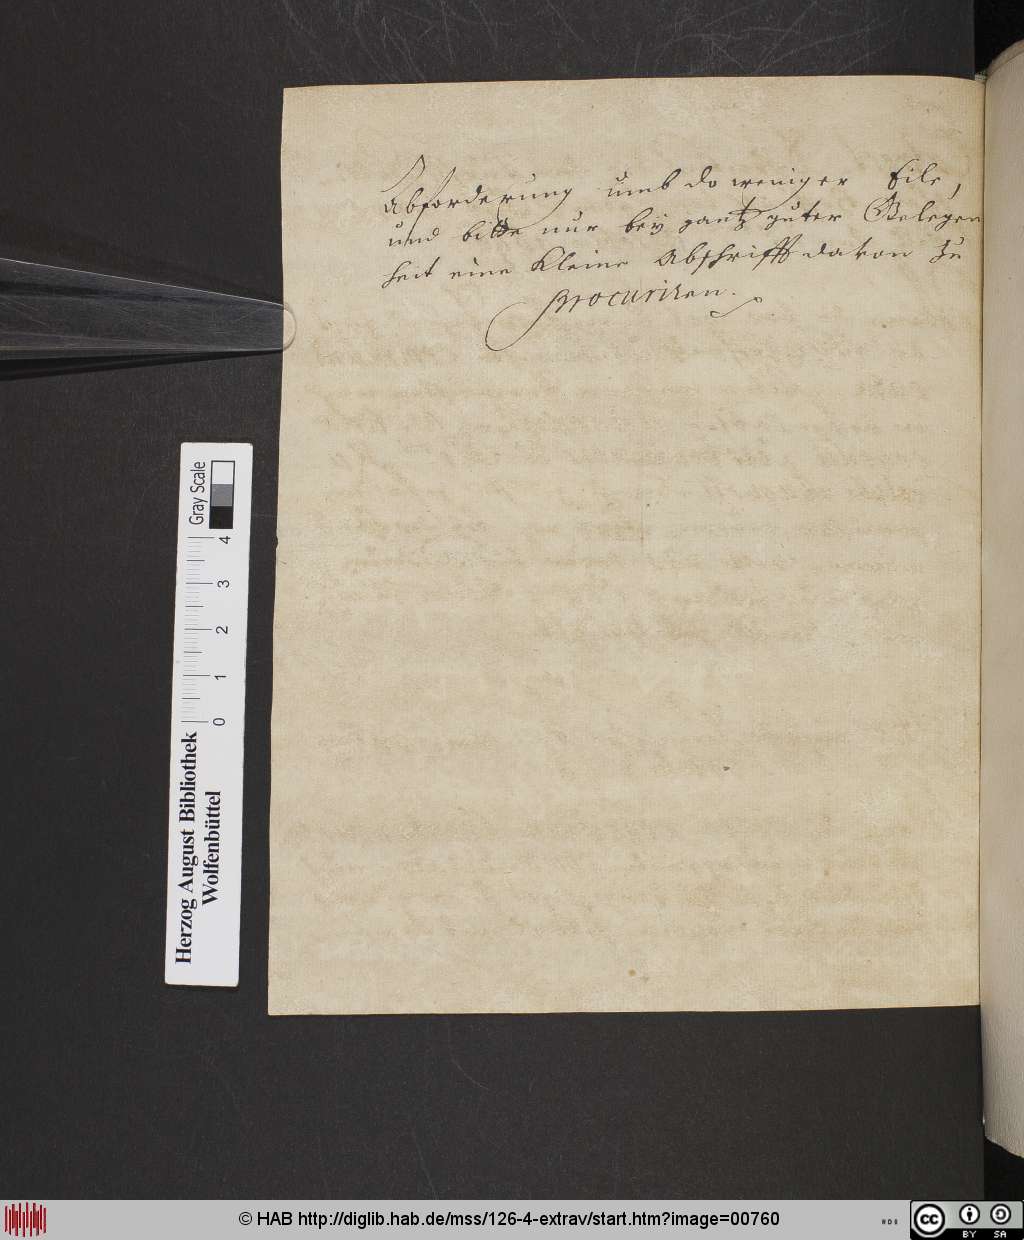 Abforderung umb do weniger Eile,
und bitte nur bey gantz guter Gelegen
heit eine kleine Abschrifft davon zu
procuriren.
Gray Scale
4
3
2
1
0
Herzog August Bibliothek
Wolfenbüttel
© HAB http://diglib.hab.de/mss/126-4-extrav/start.htm?image=00760
cc
BY SA